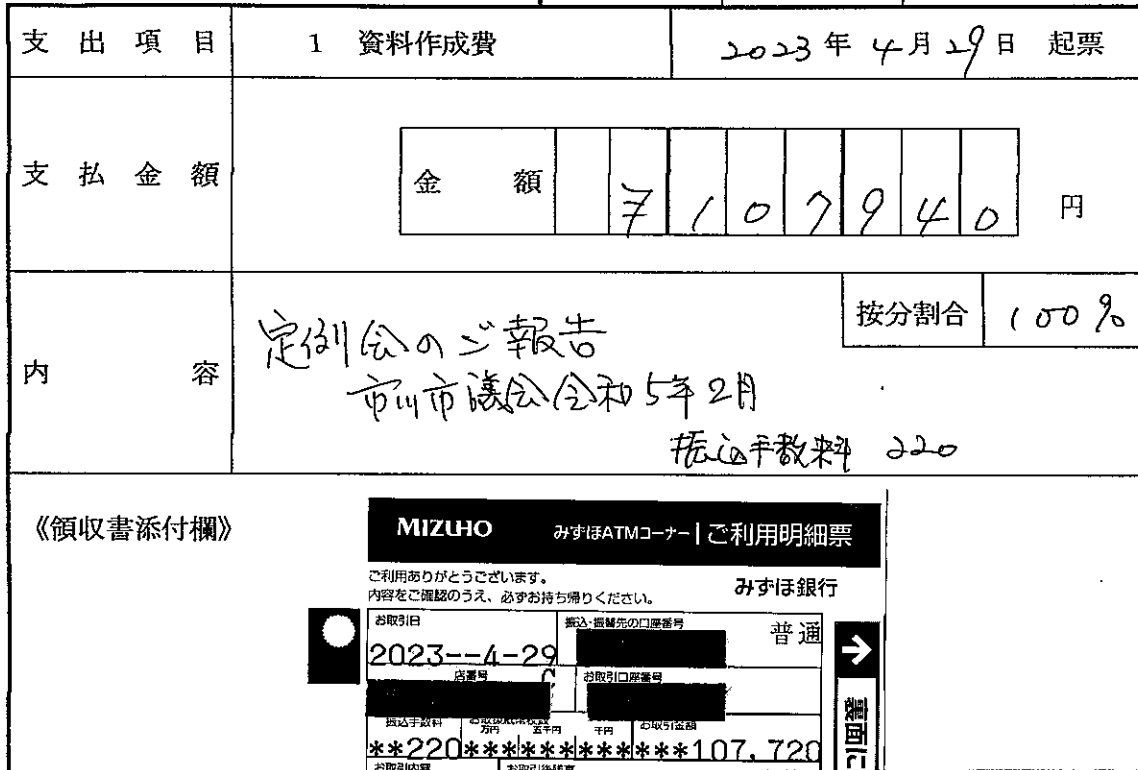 支出項目 1 資料作成費 2023年4月29日 起票
支払金額 金額 ¥107940 円
按分割合 100%
内容 定例会のご報告
市川市議会令和5年2月
振込手数料 220
《領収書添付欄》
MIZUHO みずほATMコーナー ご利用明細票
ご利用ありがとうございます。
内容をご確認のうえ、必ずお持ち帰りください。
みずほ銀行
お取引日 振込・振替先の口座番号 普通
2023--4-29
店番号 お取引口座番号
振込手数料 万円 五千円 千円 お取引金額
**220************107,720
お取引内容 お取引後残高
裏面に